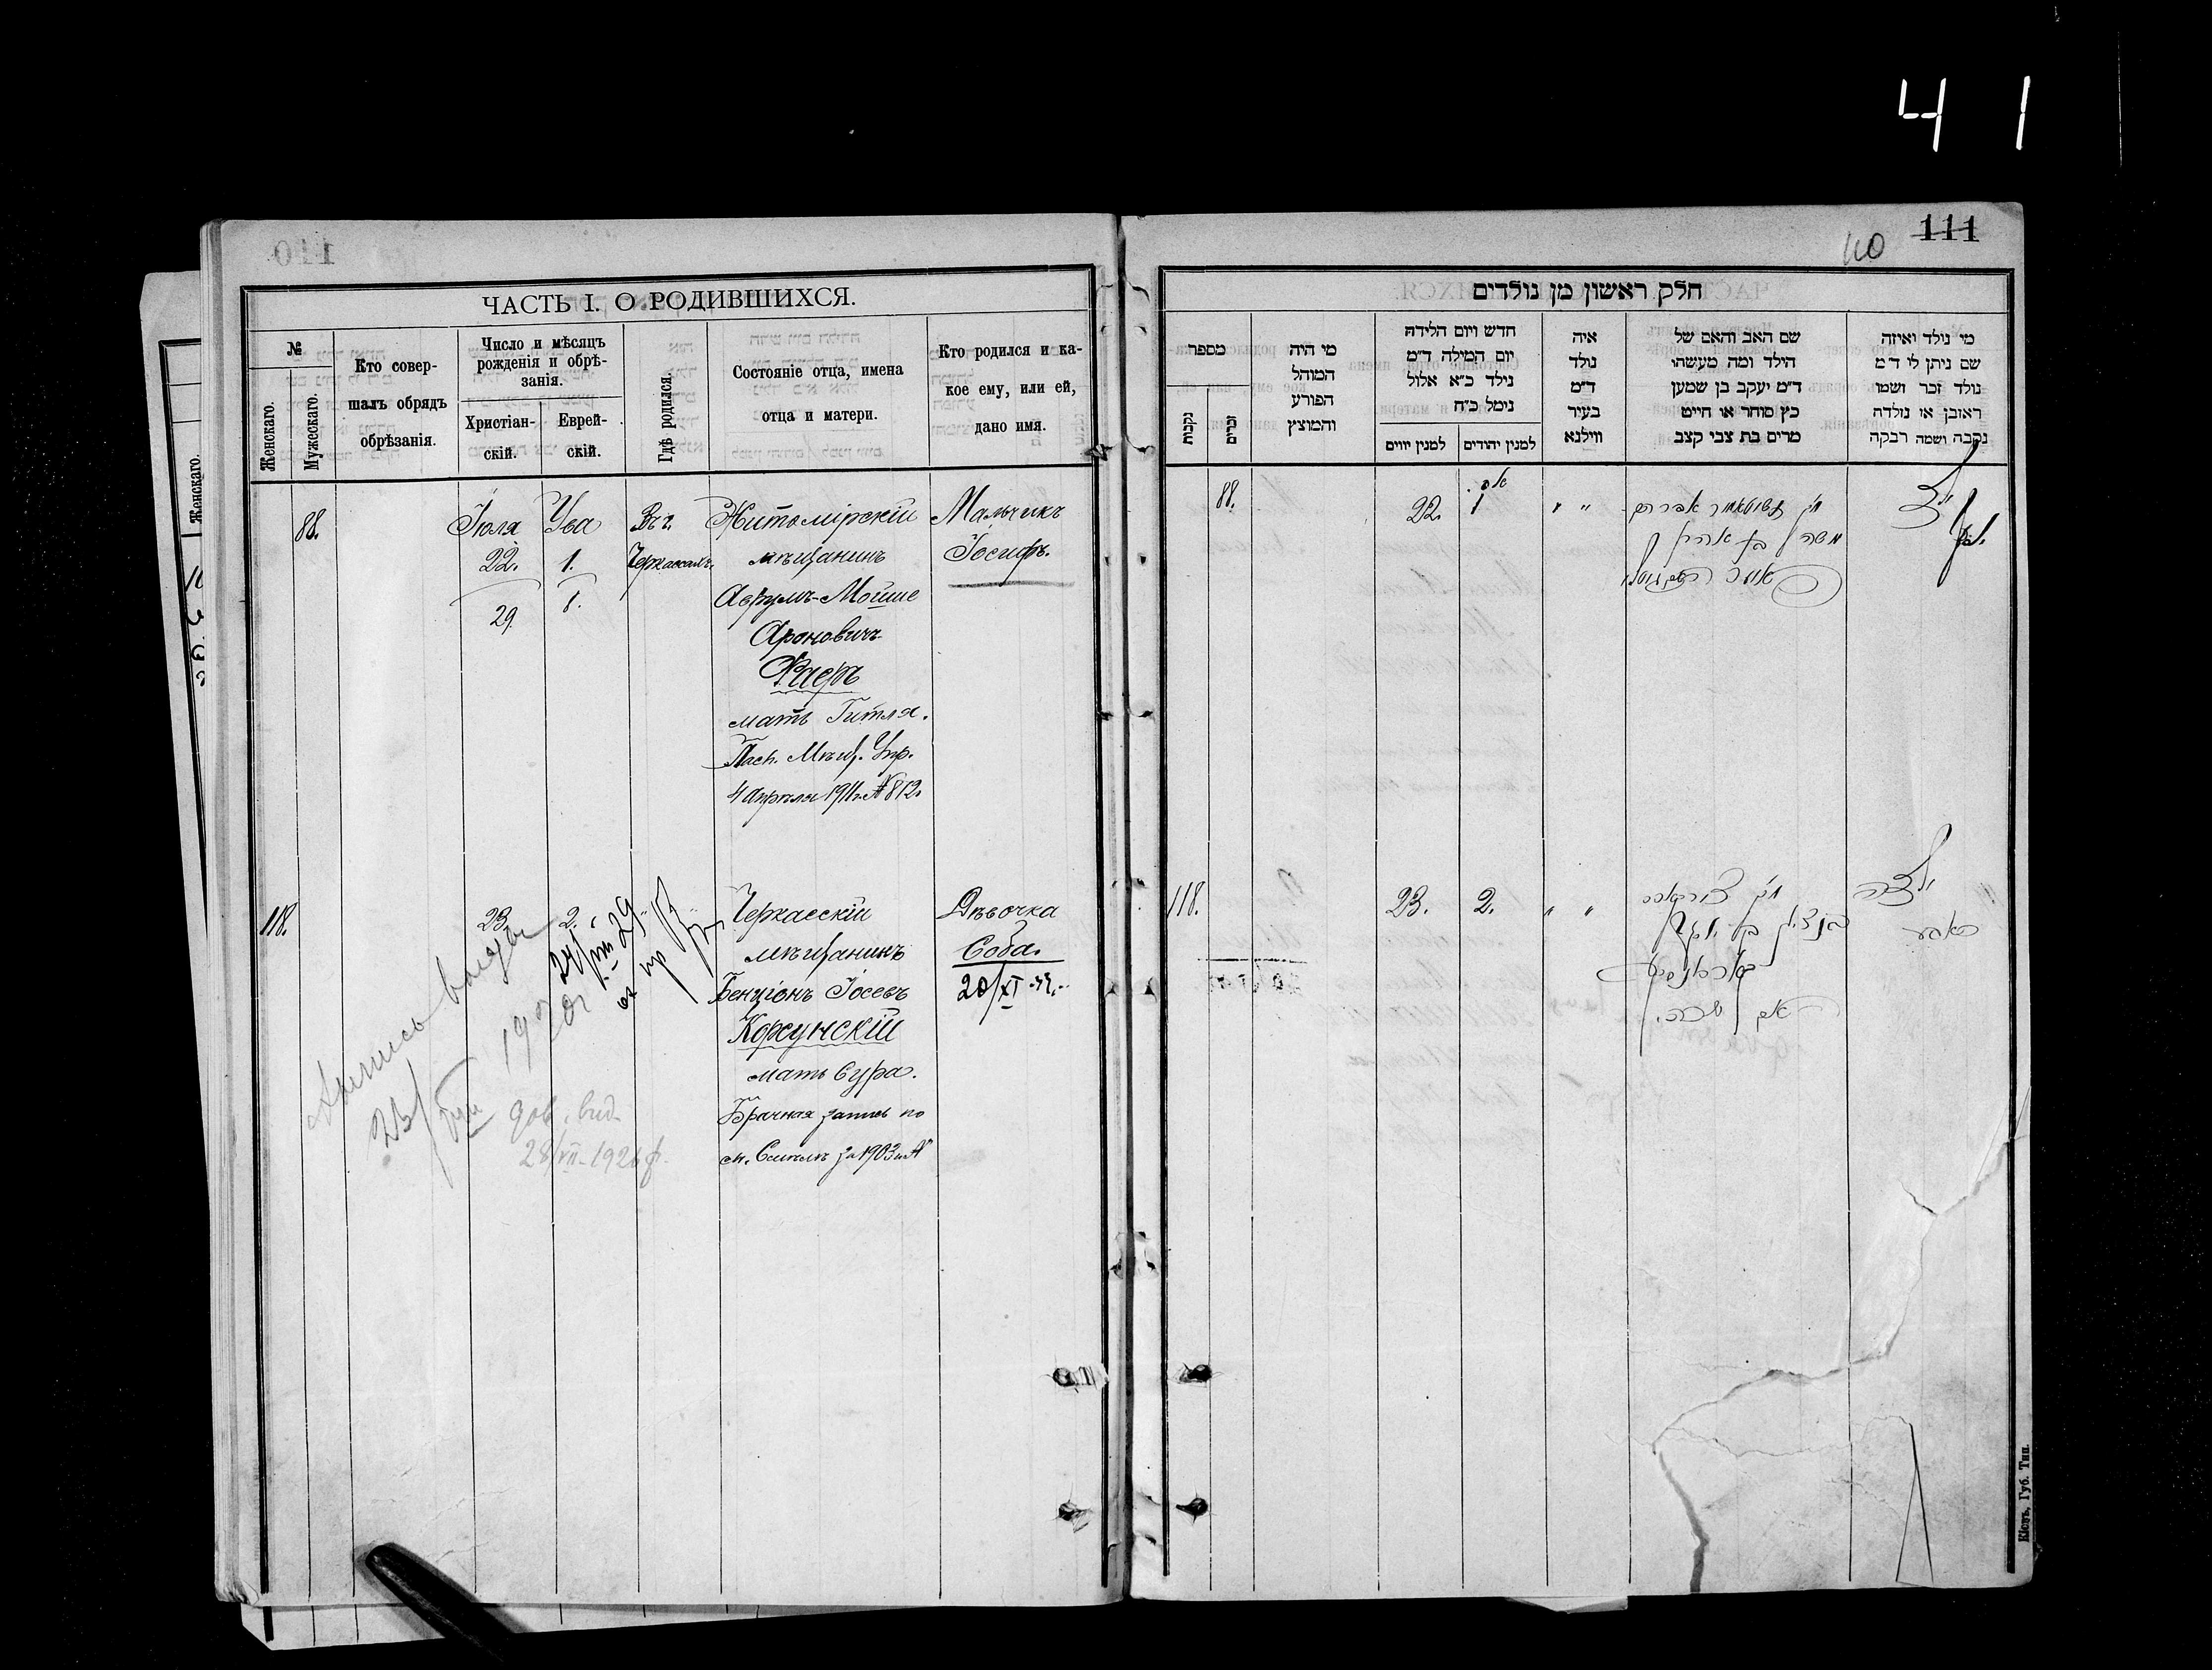 4 1
110
ЧАСТЬ I. О РОДИВШИХСЯ.
№
Женскаго.
Мужескаго.
Кто совер-
шалъ обрядъ
обрѣзанія.
Число и мѣсяцъ
рожденія и обрѣ-
занія.
Христіан-
скій.
Еврей-
скій.
Гдѣ родился.
Состояніе отца, имена
отца и матери.
Кто родился и ка-
кое ему, или ей,
дано имя.
88.
Іюля
22.
29.
Ува
1.
8.
Въ г.
Черкассахъ.
Житомірскій
мѣщанинъ
Аврумъ-Мойше
Ароновичъ
Фаеръ
мать Гитля.
Пасп. Мѣщ. Упр.
4 Апрѣля 1911 г. № 812.
Мальчикъ
Іосифъ.
118.
23.
2.
Черкасскій
мѣщанинъ
Бенціонъ Іосевъ
Корсунскій
мать Сура.
Брачная запись по
м. Смѣлѣ за 1903 г. №
Дѣвочка
Соба.
20/XI
23/VIII 1920 г.
28/VII-1926
Женскаго.
110
111
חלק ראשון מן נולדים
מספר
נקבות
זכרים
מי היה
המוהל
הפורע
והמוצץ
חדש ויום הלידה
יום המילה ד״מ
נילד כ״א אלול
נימל כ״ח
למנין יווים
למנין יהודים
איה
נולד
ד״מ
בעיר
ווילנא
שם האב והאם של
הילד ומה מעשהו
ד״מ יעקב בן שמען
כץ סוחר או חייט
מרים בת צבי קצב
מי נולד ואיזה
שם ניתן לו ד״מ
נולד זכר ושמו
ראובן או נולדה
נקבה ושמה רבקה
88.
22.
1
" "
משה בן אהרן
ילד
118.
23.
2.
" "
בנציון בן יוסף
ילדה
Кіевъ, Губ. Тип.